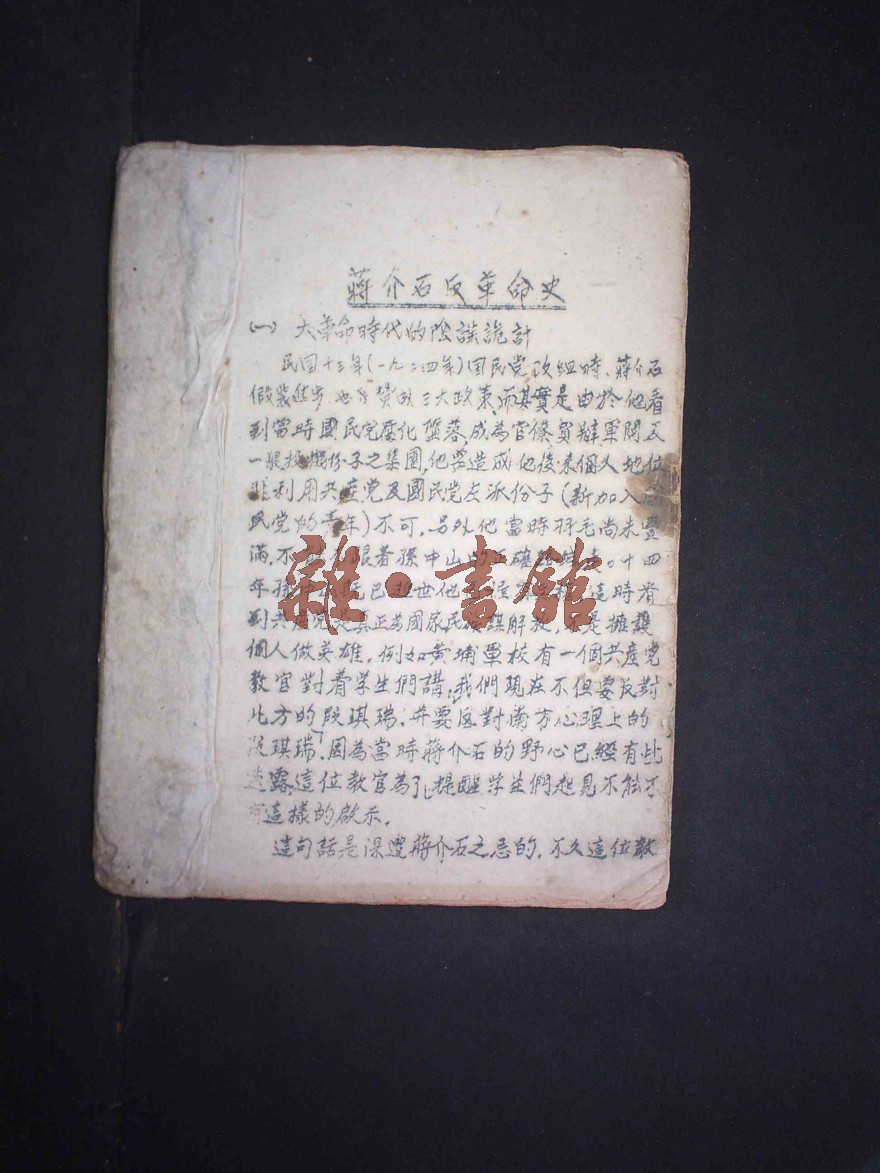 蔣介石反革命史
(一) 大革命時代的陰謀詭計
民国十三年(一九二四年)国民党改組時、蔣介石
假装進步 也 贊成三大政策,而其實是由於他看
到當時國民党腐化墮落,成為官僚買辦軍閥及
一般投機份子之集團,他要造成他後来個人地位
非利用共產党及國民党左派份子(新加入国
民党的青年)不可,另外他當時羽毛尚未豐
滿,不 跟着孫中山的正確 。十四
年孫 已 世他 這時看
到共產党是真正為國家民族謀解放, 是擁護
個人做英雄,例如黄埔軍校有一個共產党
教官對着学生們講:我們現在不但要反對
北方的段琪瑞,并要反對南方心理上的
段琪瑞",因為當時蔣介石的野心已經有些
透露,這位教官為了提醒学生們起見不能不
有這樣的啟示.
這句話是深遭蔣介石之忌的,不久這位教
雜·書館